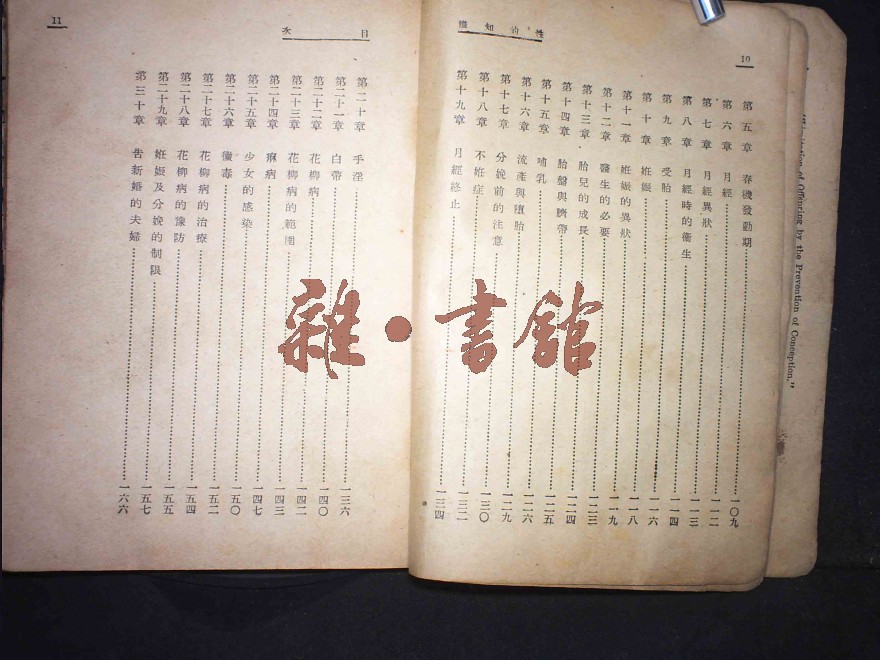 10
性的知識
第五章 春機發動期……一〇九
第六章 月經……一一二
第七章 月經異狀……一一三
第八章 月經時的衛生……一一四
第九章 受胎……一一六
第十章 妊娠……一一八
第十一章 妊娠的異狀……一一九
第十二章 醫生的必要……一二三
第十三章 胎兒的成長……一二四
第十四章 胎盤與臍帶……一二五
第十五章 哺乳……一二六
第十六章 流產與墮胎……一二九
第十七章 分娩前的注意……一三〇
第十八章 不妊症……一三二
第十九章 月經終止……一三四
目次
11
第二十章 手淫……一三六
第二十一章 白帶……一四〇
第二十二章 花柳病……一四二
第二十三章 花柳病的範圍……一四三
第二十四章 痳病……一四七
第二十五章 少女的感染……一五〇
第二十六章 黴毒……一五二
第二十七章 花柳病的治療……一五四
第二十八章 花柳病的豫防……一五五
第二十九章 妊娠及分娩的制限……一五七
第三十章 告新婚的夫婦……一六六
of Offspring by the Prevention of Conception."
雜·書館